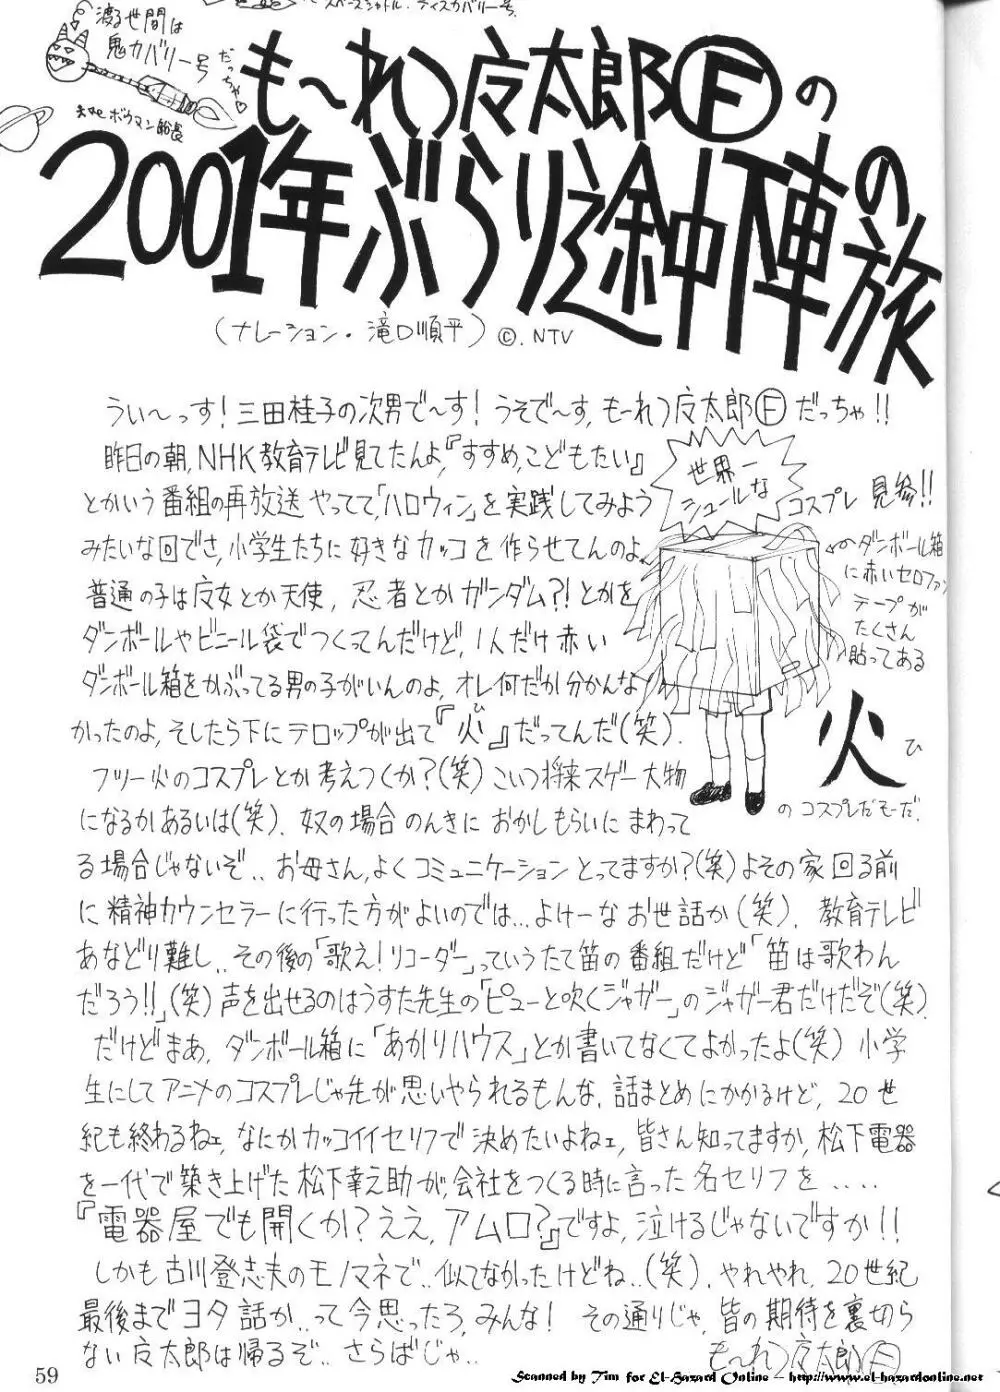 スペースシャトル・ディスカバリー号。
渡る世間は
鬼カバリー号
だっちゃ♡
ボウマン船長
も〜れつ广太郎Ⓕの
2001年ぶらり途中下車の旅
(ナレーション・滝口順平)©.NTV
うぃ〜っす!三田桂子の次男で〜す!うそで〜す,も〜れつ广太郎Ⓕだっちゃ!!
昨日の朝,NHK教育テレビ見てたんよ,『すすめ,こどもたい』
とかいう番組の再放送やってて,「ハロウィン」を実践してみよう
みたいな回でさ,小学生たちに好きなカッコを作らせてんのよ,
普通の子は广女とか天使,忍者とかガンダム?!とかを
ダンボールやビニール袋でつくってんだけど,1人だけ赤い
ダンボール箱をかぶってる男の子がいんのよ,オレ何だか分かんな
かったのよ,そしたら下にテロップが出て『火』だってんだ(笑).
ひ
フツー火のコスプレとか考えつくか?(笑)こいつ将来スゲー大物
になるかあるいは(笑).奴の場合のんきにおかしもらいにまわって
る場合じゃないぞ..お母さん,よくコミュニケーションとってますか?(笑)よその家回る前
に精神カウンセラーに行った方がよいのでは...よけーなお世話か(笑).教育テレビ
あなどり難し..その後の「歌え!リコーダー」っていうたて笛の番組だけど「笛は歌わん
だろう!!」(笑)声を出せるのはうすた先生の「ピューと吹くジャガー」のジャガー君だけだぞ(笑).
だけどまあ,ダンボール箱に「あかりハウス」とか書いてなくてよかったよ(笑)小学
生にしてアニメのコスプレじゃ先が思いやられるもんな.話まとめにかかるけど,20世
紀も終わるねェ,なにかカッコイイセリフで決めたいよねェ,皆さん知ってますか,松下電器
を一代で築き上げた松下幸之助が,会社をつくる時に言った名セリフを....
『電器屋でも開くか?ええ,アムロ?』ですよ,泣けるじゃないですか!!
しかも古川登志夫のモノマネで..似てなかったけどね..(笑).やれやれ,20世紀
最後までヨタ話か..って今思ったろ,みんな! その通りじゃ,皆の期待を裏切ら
ない广太郎は帰るぞ..さらばじゃ..
も〜れつ广太郎Ⓕ
世界一
シュールな
コスプレ見参!!
ダンボール箱
に赤いセロファン
テープが
たくさん
貼ってある
火
ひ
のコスプレだそーだ.
59
Scanned by Tim for El-Hazard Online -- http://www.el-hazardonline.net